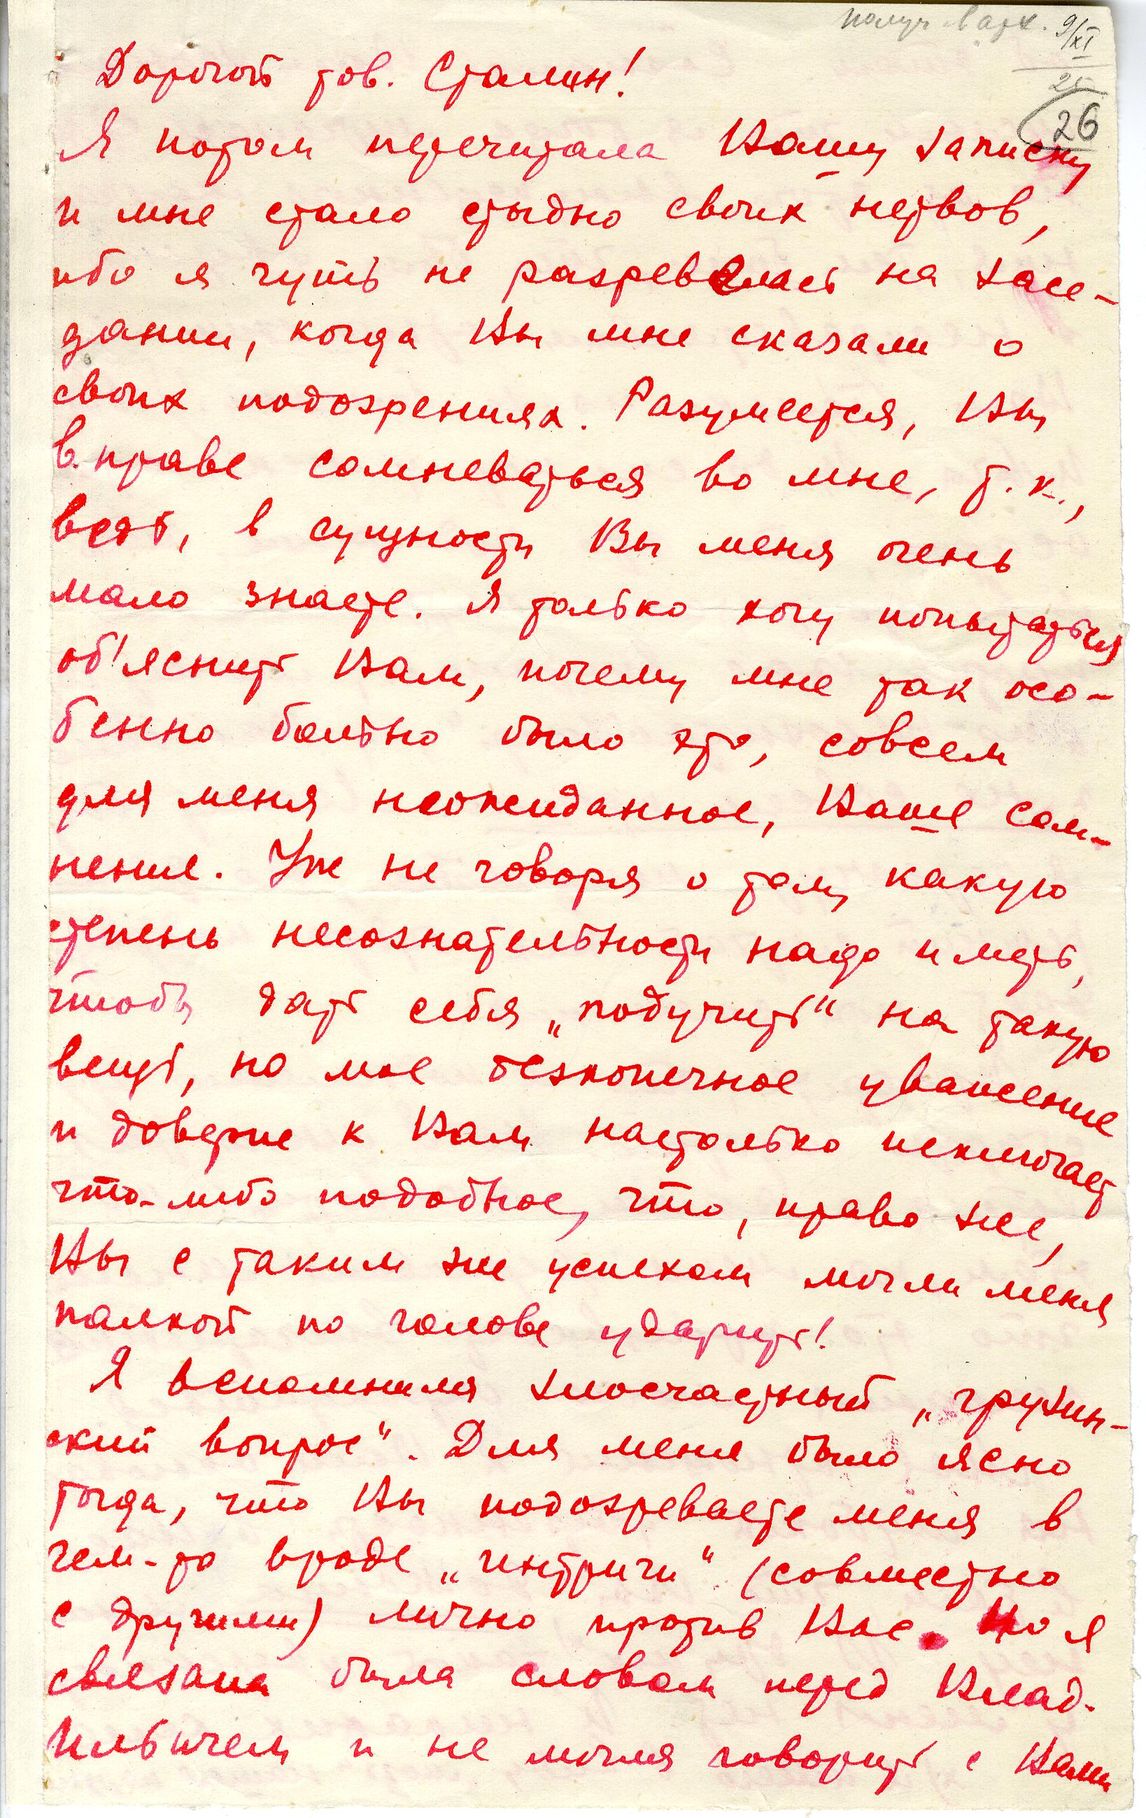 получ. в арх. 9/XI
26
Дорогой тов. Сталин!
Я потом перечитала Вашу записку
и мне стало стыдно своих нервов,
ибо я чуть не разревелась на засе-
дании, когда Вы мне сказали о
своих подозрениях. Разумеется, Вы
в праве сомневаться во мне, т.к.,
ведь, в сущности Вы меня очень
мало знаете. Я только хочу попытаться
об'яснить Вам, почему мне так осо-
бенно больно было это, совсем
для меня неожиданное, Ваше сом-
нение. Уж не говоря о том, какую
степень несознательности надо иметь,
чтобы дать себя „подучить“ на такую
вещь, но мое безконечное уважение
и доверие к Вам настолько исключает
что-либо подобное, что, право же,
Вы с таким же успехом могли меня
палкой по голове ударить!
Я вспомнила злосчастный „грузин-
ский вопрос“. Для меня было ясно
тогда, что Вы подозреваете меня в
чем-то вроде „интриги“ (совместно
с другими) лично против Вас. Но я
связана была словом перед Влад.
Ильичем и не могла говорить с Вами